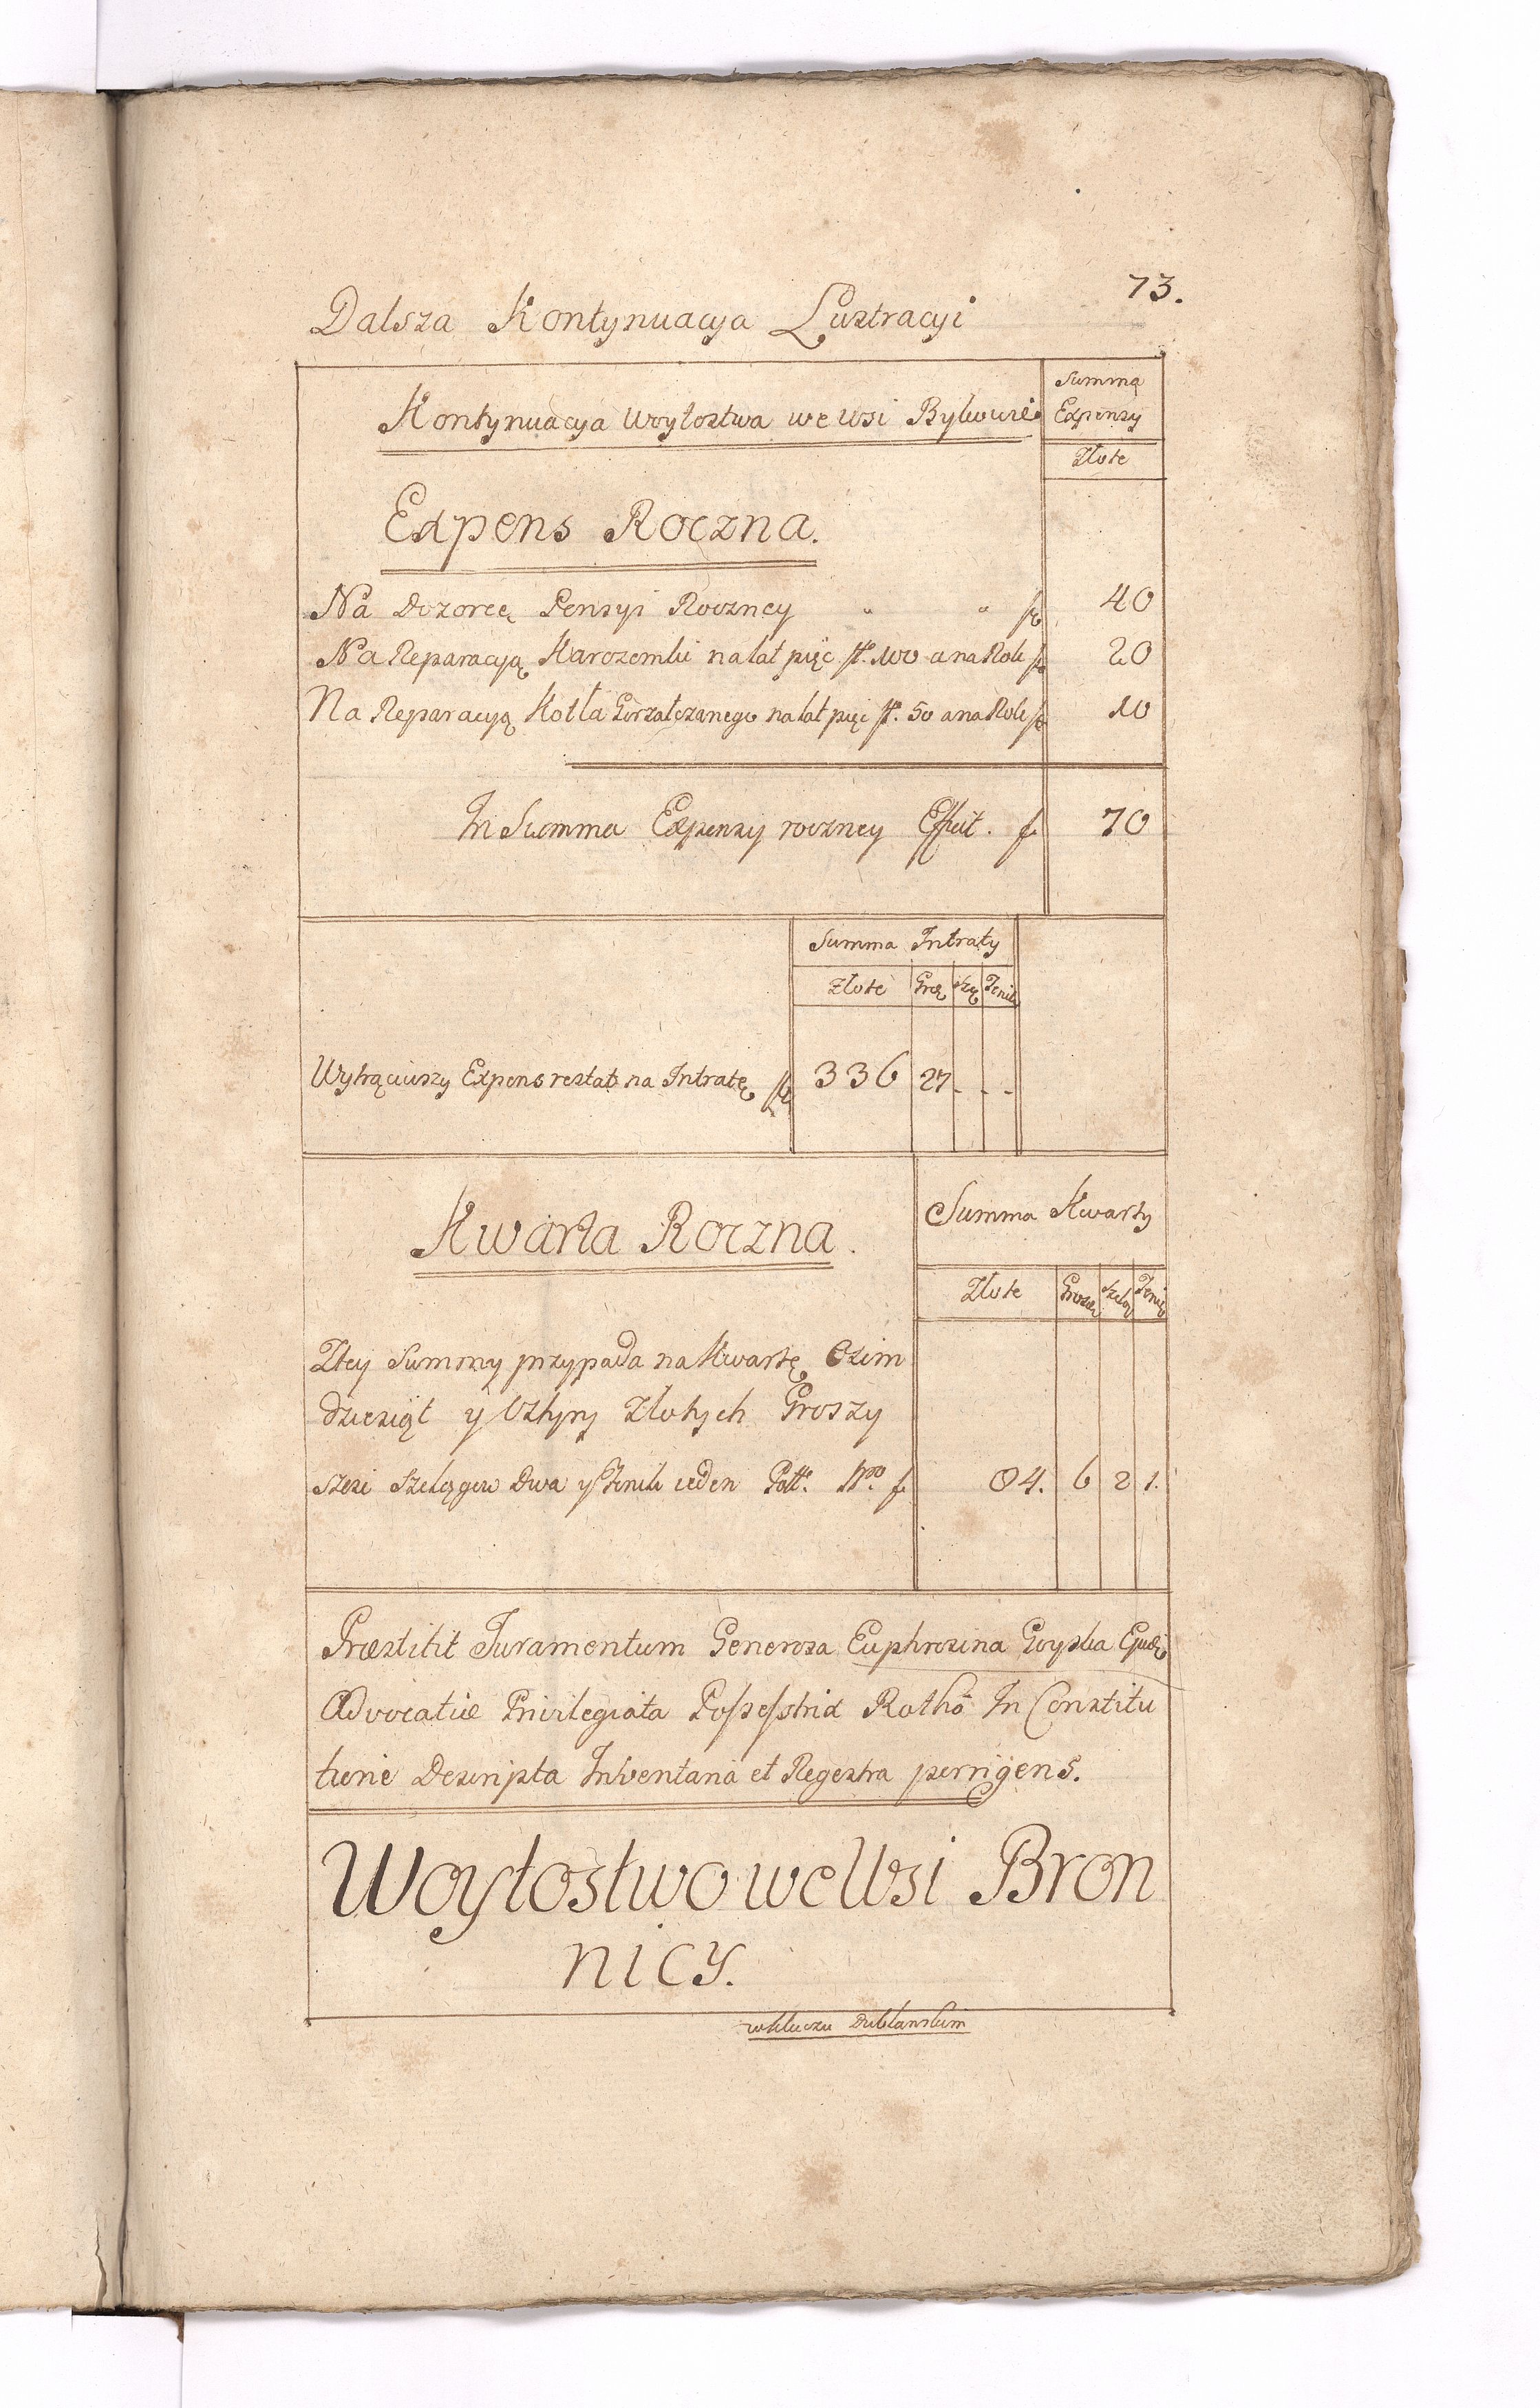 73.
Dalsza Kontynuacya Lustracyi
Kontynuacya Woytostwa we Wsi
Summa
Expensy
Złote
Expens Roczna.
Na Dozorcę Pensyi Roczney " " fł 40
Na Reparacyą Karczemki na lat pięć fł. 100 a na Rok fł 20
Na Reparacyą Kotła Gorzałczanego na lat pięć fł. 50 a na Rok fł 10
In Summa Expensy roczney Efficit. f. 70
Summa Intraty
Złote Gro Szę Fenik
Wytrąciwszy Expens restat na Intratę fł 336 27 - - -
Kwarta Roczna.
Summa Kwarty
Złote Grosze Szeląg Fenig
Ztey Summy przypada na Kwartę Ozim
dziesiąt y Cztyry Złotych Groszy
szesc Szelągow Dwa y Fenik ieden Poll. Nro. f. 84. 6 2 1.
Præstitit Juramentum Generosa Euphrosina Ejusdē
Advocatiæ Privilegiata Possesstrix Rothō In Constitu
tione Descripta Inventaria et Regestra porrigens.
Woytostwo we Wsi Bron
nicy.
w kluczu Dublanskim